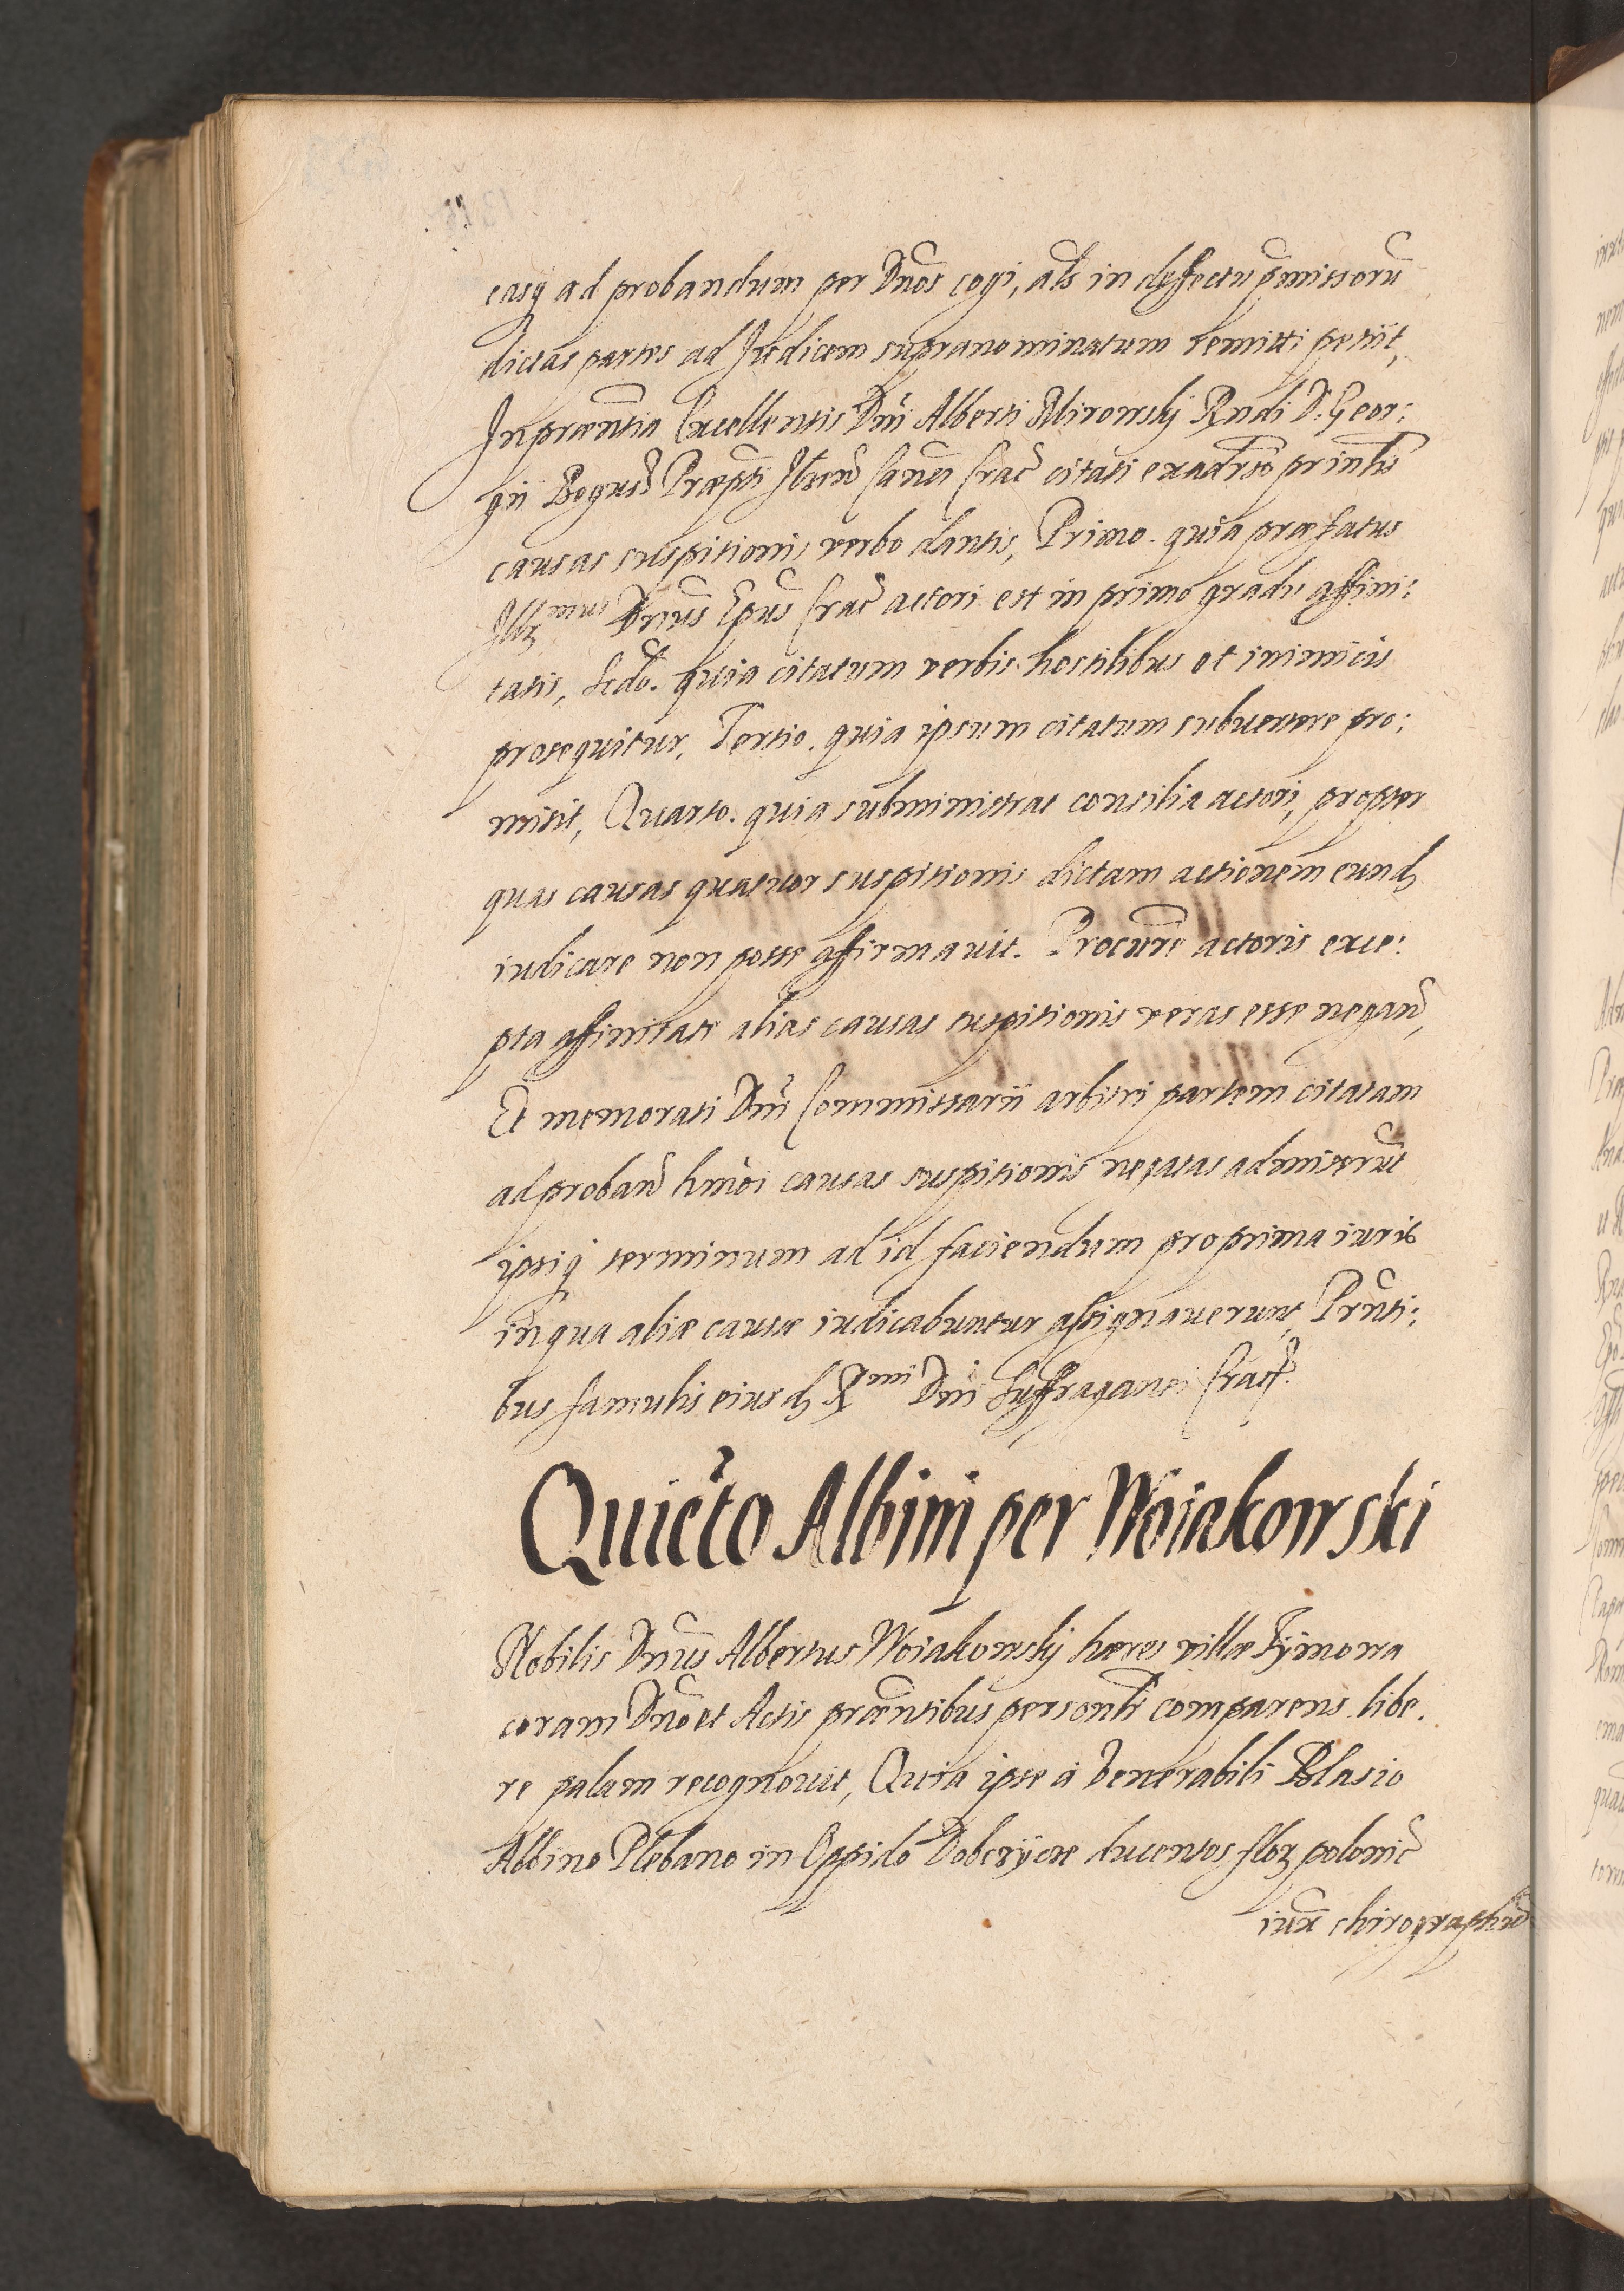 easq ad probandum per Dnos cogi, als in deffectu pmissoru
dictas partes ad Judicem supranominatum remitti petiit,
In praentia Excellentis Dni Alberti Mironsky Rndi D. Geor:
gii Crac citati
causas suspitionis verbo dantis, Primo. quia praefatus
Illmus Dnus Epus Crac actori est in primo gradu affini:
tatis, Scdo. quia citatum verbis hostilibus et inimicis
prosequitur, Tertio. quia ipsum citatum subuertere pro:
misit, Quarto. quia subministrat consilia actori, propter
quas causas quatuor suspitionis dictam actionem eund
iudicare non posse affirmauit. Procure actoris exce:
pta affinitate alias causas suspitionis veras esse negan,
Et memorati Dni Commissarii arbitri partem citatam
ad proban hmoi causas suspitionis negatas admiserut
ipsiq terminum ad id faciendum pro prima iuris
in qua aliae causae iudicabuntur assignauerunt, Prnti:
bus famulis eiusd Rmi Dni Suffraganei Crac
Quiecto Albini per Woiakowski
Nobilis Dnus Albertus Woiakowsky haeres villae Tymowa
coram Dno et Actis praentibus personlr comparens libe:
re palam recognouit, Quia ipse a Venerabili Blasio
Albino Plebano in Oppido Dobczycze ducentos flor polonic
iux chirographu